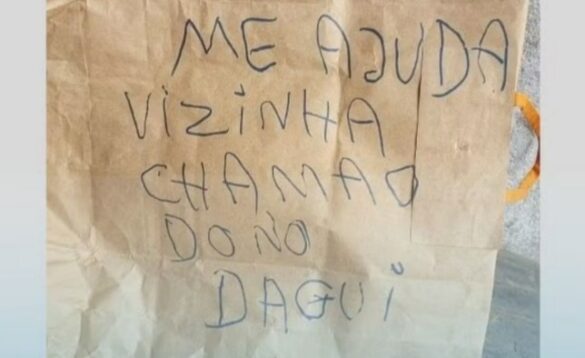 ME AJUDA
VIZINHA
CHAMAO
DONO
DAGUI